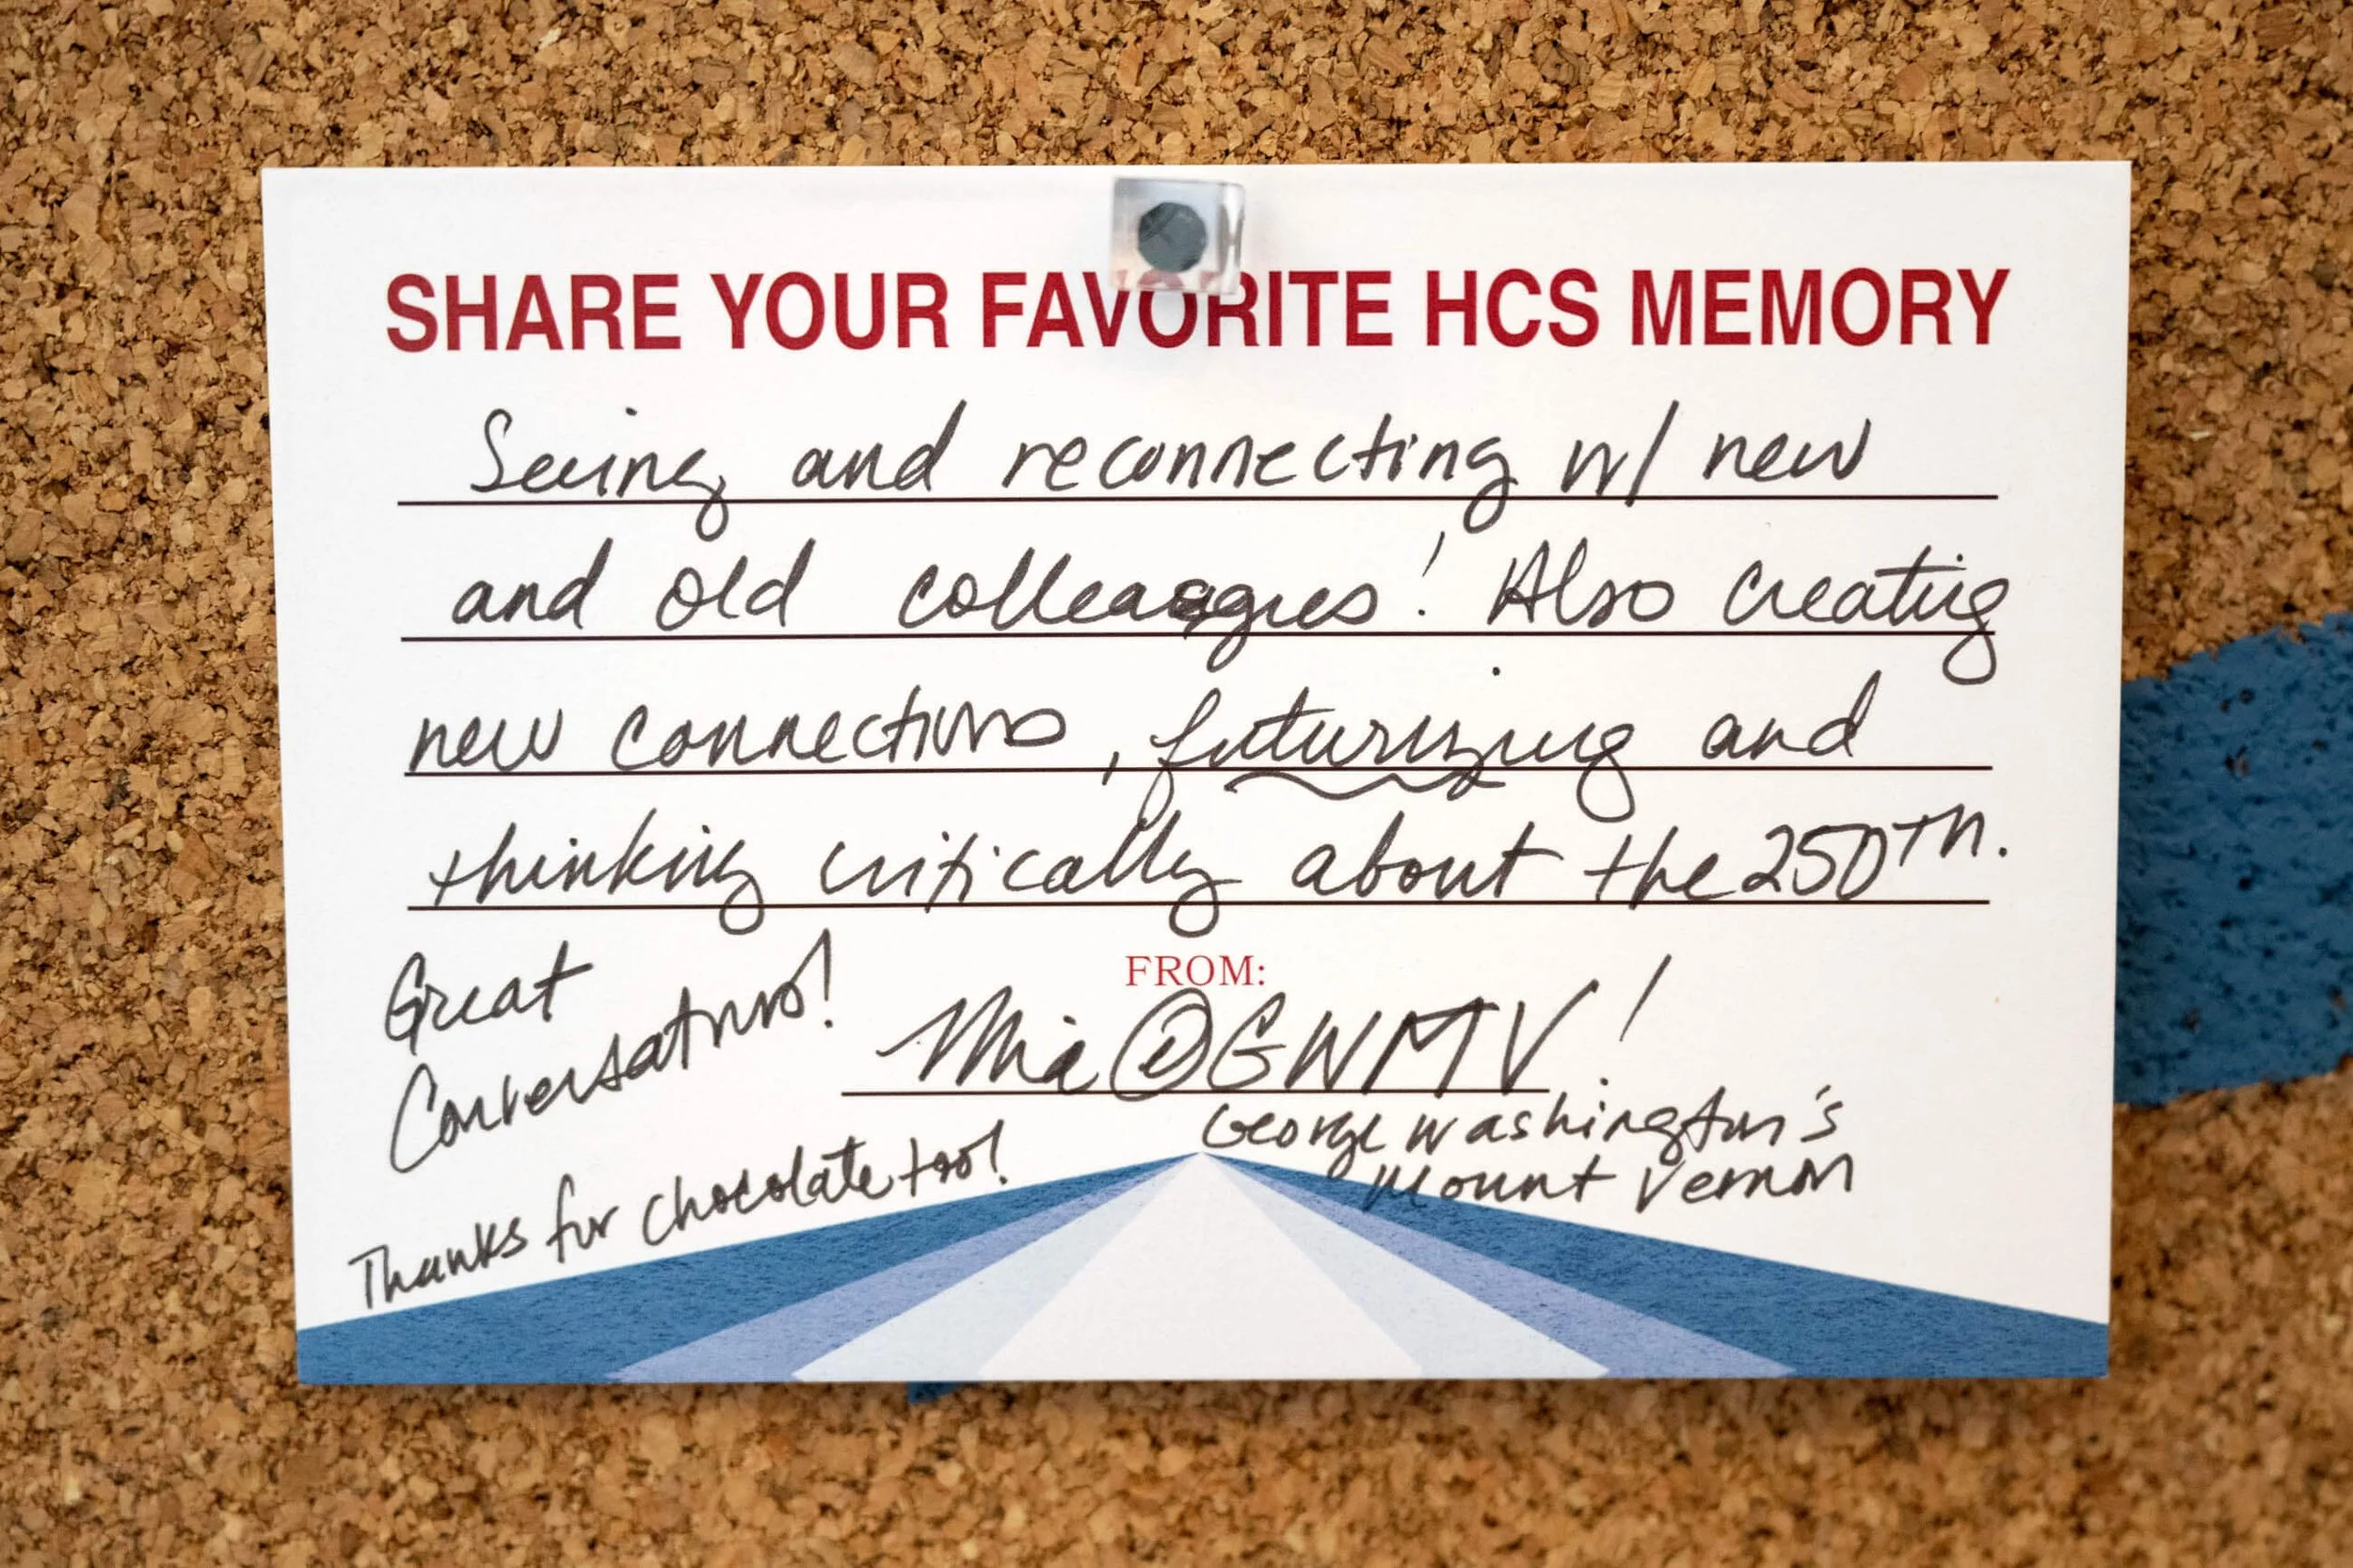 SHARE YOUR FAVORITE HCS MEMORY
Seeing and reconnecting w/ new
and old colleagues! Also creating
new connections, futurizing and
thinking critically about the 250TH.
Great
Conversations!
Thanks for chocolate too!
FROM:
Mia@GWMV!
George Washington's
Mount Vernon